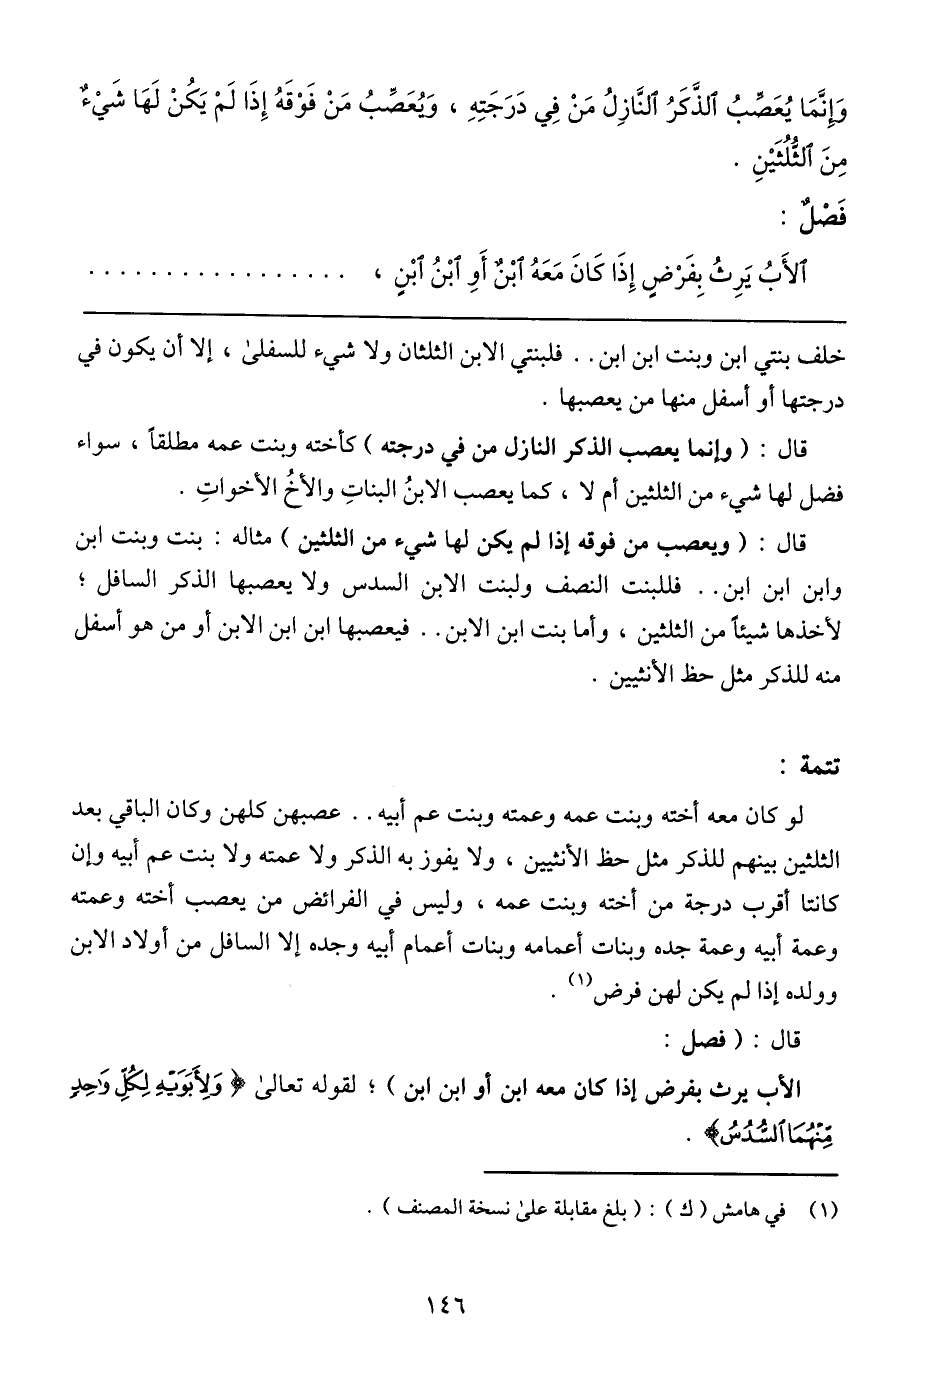 وَإِنَّمَا يُعَصِّبُ ٱلذَّكَرُ ٱلنَّازِلُ مَنْ فِي دَرَجَتِهِ ، وَيُعَصِّبُ مَنْ فَوْقَهُ إِذَا لَمْ يَكُنْ لَهَا شَيْءٌ
مِنَ ٱلثُّلُثَيْنِ .
فَصْلٌ :
ٱلأَبُ يَرِثُ بِفَرْضٍ إِذَا كَانَ مَعَهُ ٱبْنٌ أَوِ ٱبْنُ ٱبْنٍ ، . . . . . . . . . . . . . . . . .
خلف بنتي ابن وبنت ابن ابن . . فلبنتي الابن الثلثان ولا شيء للسفلىٰ ، إلا أن يكون في
درجتها أو أسفل منها من يعصبها .
قال : ( وإنما يعصب الذكر النازل من في درجته ) كأخته وبنت عمه مطلقاً ، سواء
فضل لها شيء من الثلثين أم لا ، كما يعصب الابنُ البناتِ والأخُ الأخواتِ .
قال : ( ويعصب من فوقه إذا لم يكن لها شيء من الثلثين ) مثاله : بنت وبنت ابن
وابن ابن ابن . . فللبنت النصف ولبنت الابن السدس ولا يعصبها الذكر السافل ؛
لأخذها شيئاً من الثلثين ، وأما بنت ابن الابن . . فيعصبها ابن ابن الابن أو من هو أسفل
منه للذكر مثل حظ الأنثيين .
تتمة :
لو كان معه أخته وبنت عمه وعمته وبنت عم أبيه . . عصبهن كلهن وكان الباقي بعد
الثلثين بينهم للذكر مثل حظ الأنثيين ، ولا يفوز به الذكر ولا عمته ولا بنت عم أبيه وإن
كانتا أقرب درجة من أخته وبنت عمه ، وليس في الفرائض من يعصب أخته وعمته
وعمة أبيه وعمة جده وبنات أعمامه وبنات أعمام أبيه وجده إلا السافل من أولاد الابن
وولده إذا لم يكن لهن فرض(١) .
قال : ( فصل :
الأب يرث بفرض إذا كان معه ابن أو ابن ابن ) ؛ لقوله تعالىٰ ﴿ وَلِأَبَوَيْهِ لِكُلِّ وَٰحِدٍ
مِّنْهُمَا ٱلسُّدُسُ﴾ .
(١) في هامش ( ك ) : ( بلغ مقابلة علىٰ نسخة المصنف ) .
١٤٦